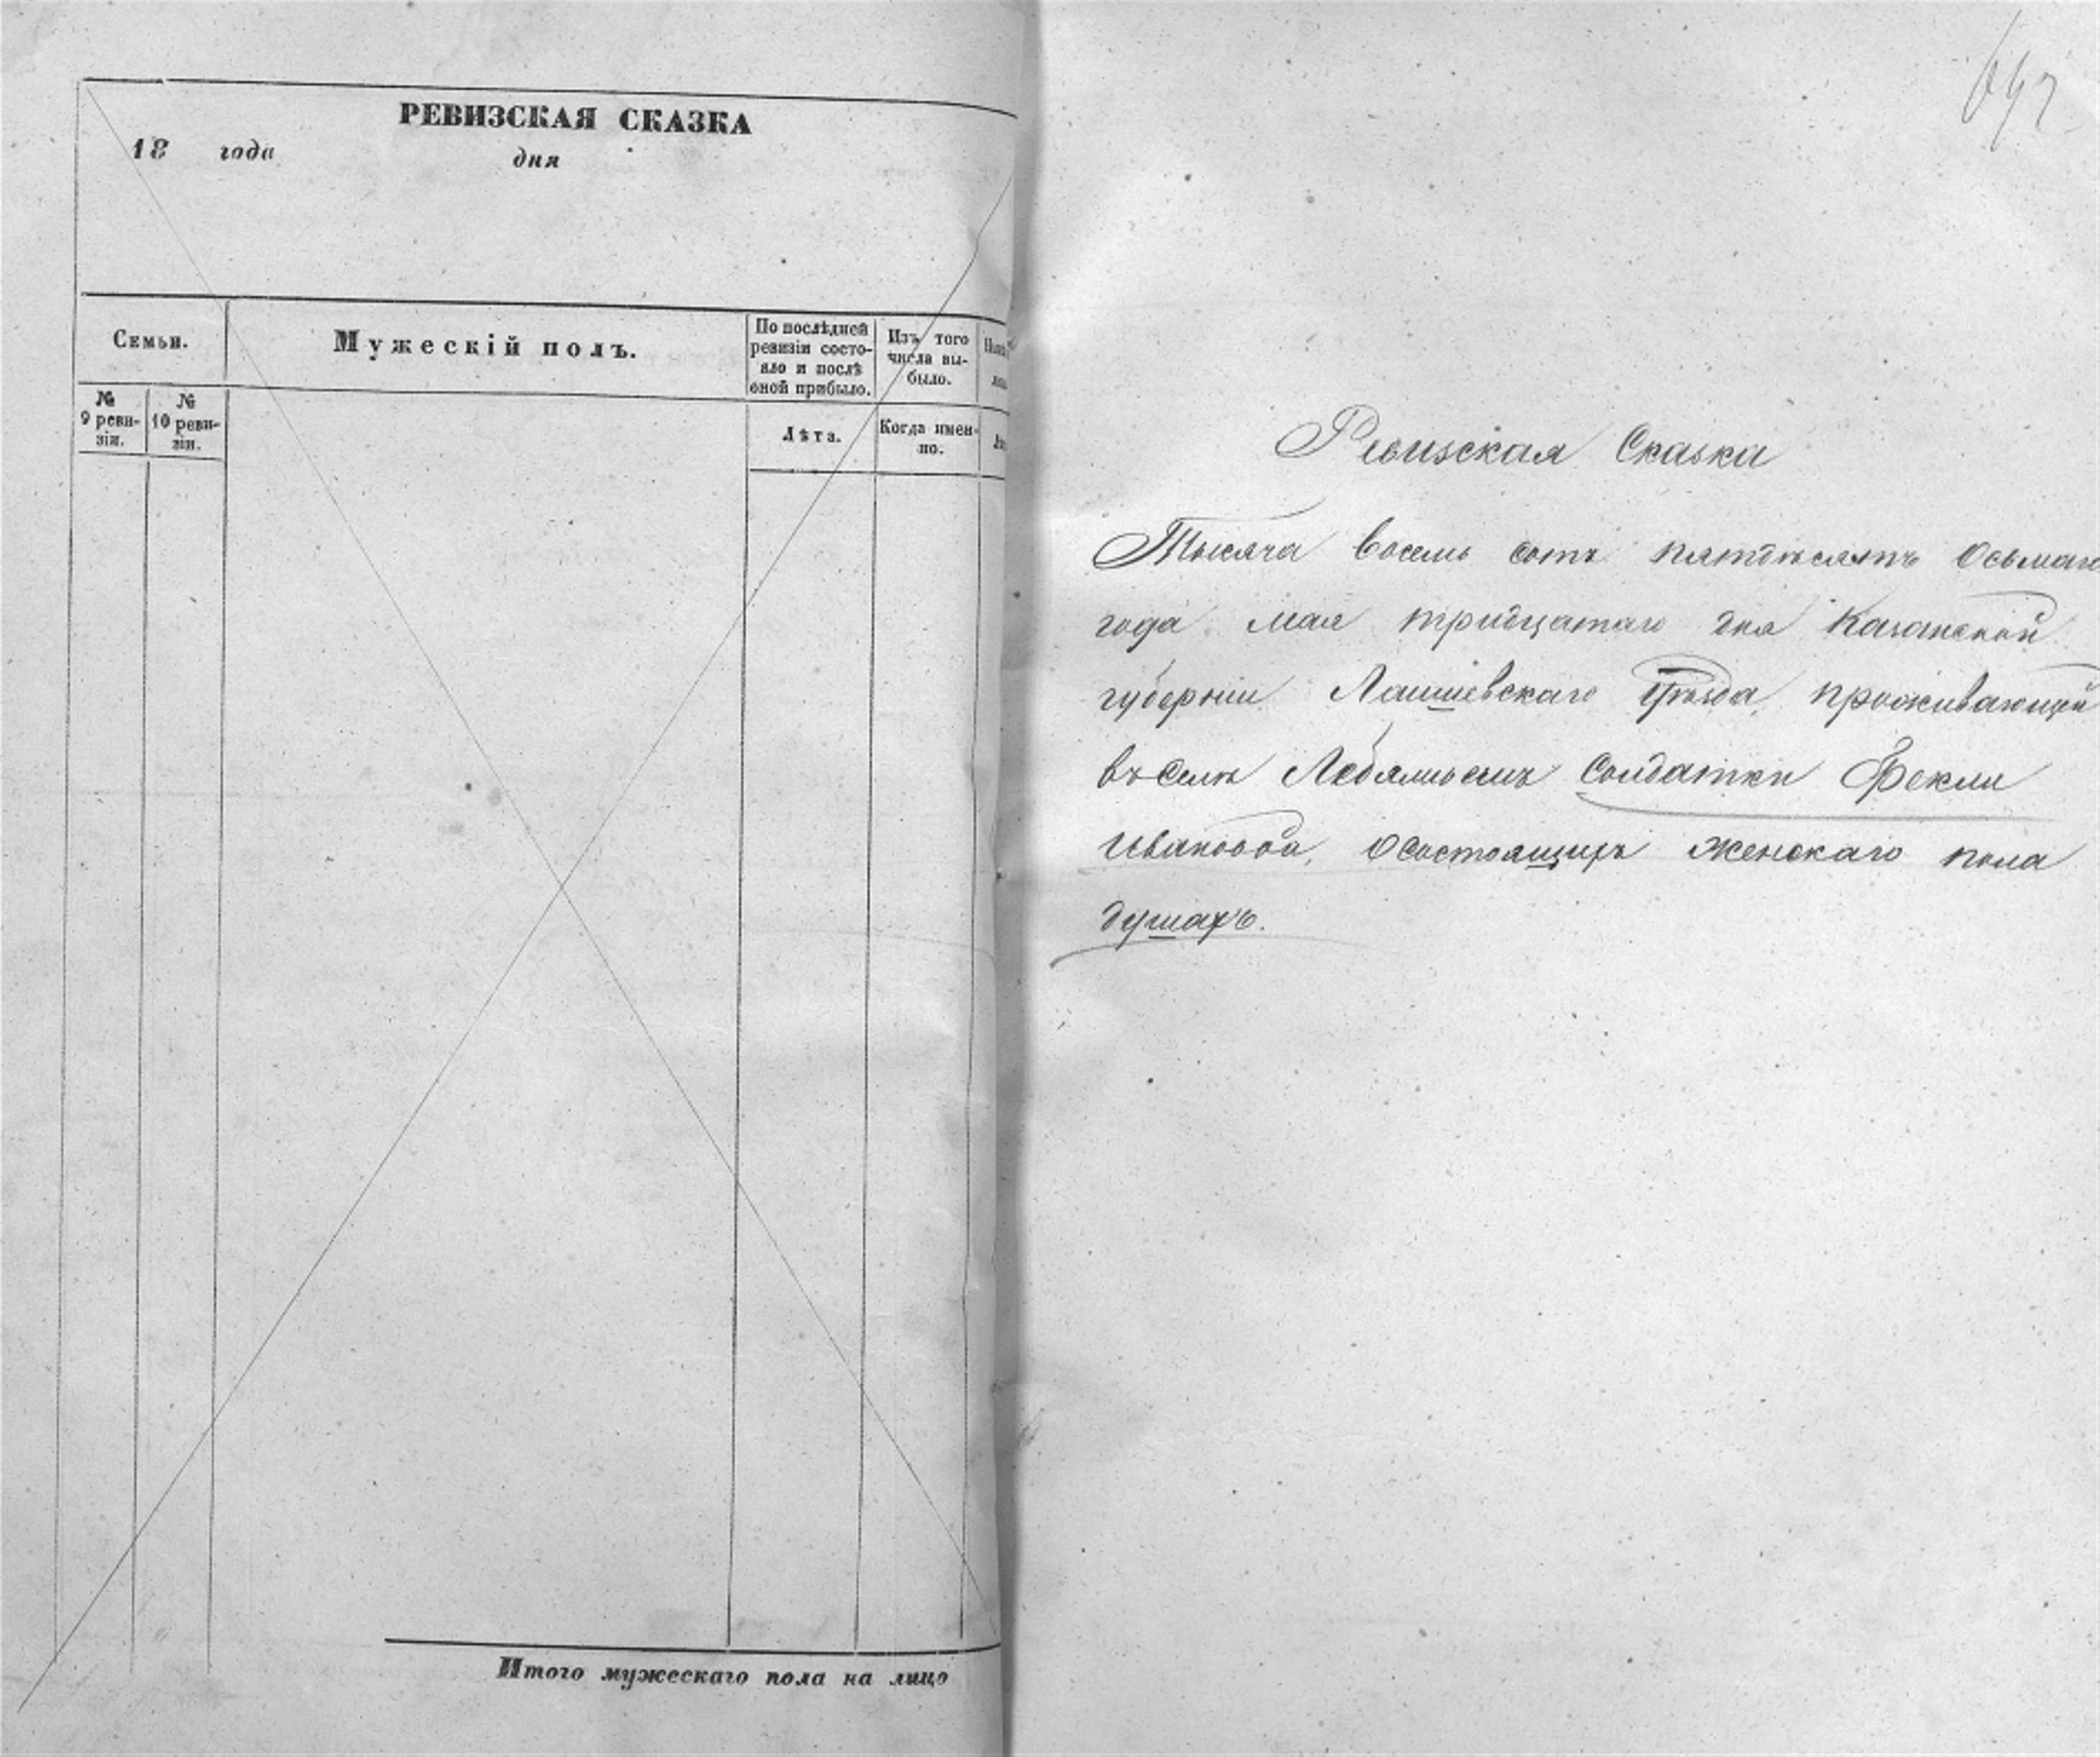 РЕВИЗСКАЯ СКАЗКА
18 года дня
Семьи.
Мужескій полъ.
По послѣдней
ревизіи состо-
яло и послѣ
оной прибыло.
Изъ того
числа вы-
было.
№
9 реви-
зіи.
№
10 реви-
зіи.
Лѣта.
Когда имен-
но.
Итого мужескаго пола на лицо
Ревизская Сказка
Тысяча восемь сотъ пятдѣсятъ осьмаго
года мая тридцатаго дня Казанской
губерніи Лаишевскаго Уѣзда, проживающей
въ Селѣ солдатки Фекли
Ивановой, осостоящихъ женскаго пола
душахъ.